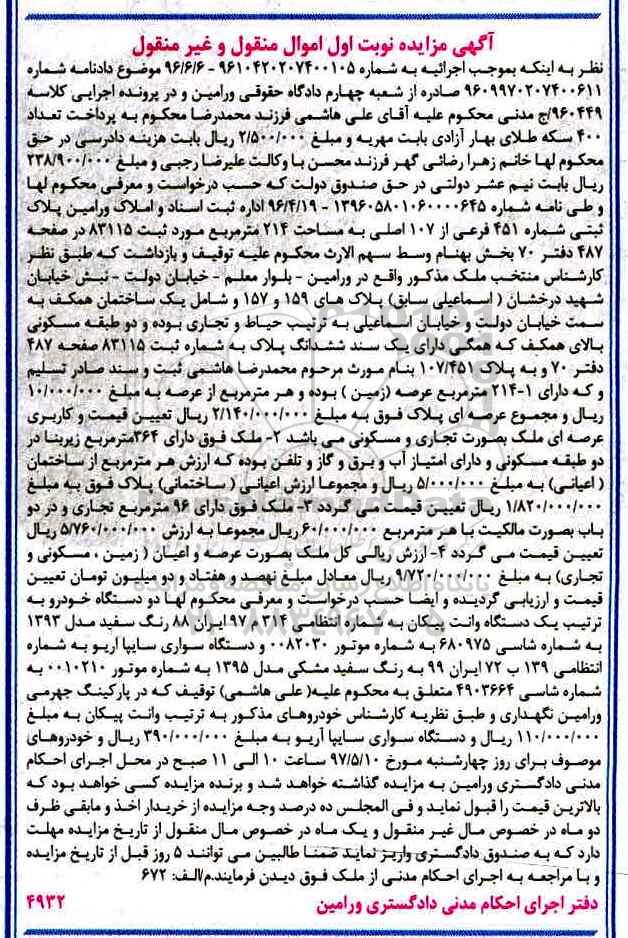 آگهی مزایده نوبت اول اموال منقول و غیر منقول
نظر به اینکه بموجب اجرائیه به شماره ۹۶۱۰۴۲۰۲۰۷۴۰۰۱۰۵ - ۹۶/۶/۶ موضوع دادنامه شماره
۹۶۰۹۹۷۰۲۰۷۴۰۰۶۱۱ صادره از شعبه چهارم دادگاه حقوقی ورامین و در پرونده اجرایی کلاسه
۹۶۰۴۴۹/ج مدنی محکوم علیه آقای علی هاشمی فرزند محمدرضا محکوم به پرداخت تعداد
۴۰۰ سکه طلای بهار آزادی بابت مهریه و مبلغ ۲/۵۰۰/۰۰۰ ریال بابت هزینه دادرسی در حق
محکوم لها خانم زهرا رضائی گهر فرزند محسن با وکالت علیرضا رجبی و مبلغ ۲۳۸/۹۰۰/۰۰۰
ریال بابت نیم عشر دولتی در حق صندوق دولت که حسب درخواست و معرفی محکوم لها
و طی نامه شماره ۱۳۹۶۰۵۸۰۱۰۶۰۰۰۰۶۴۵ - ۹۶/۴/۱۹ اداره ثبت اسناد و املاک ورامین پلاک
ثبتی شماره ۴۵۱ فرعی از ۱۰۷ اصلی به مساحت ۲۱۴ مترمربع مورد ثبت ۸۳۱۱۵ در صفحه
۴۸۷ دفتر ۷۰ بخش بهنام وسط سهم الارث محکوم علیه توقیف و بازداشت که طبق نظر
کارشناس منتخب ملک مذکور واقع در ورامین - بلوار معلم - خیابان دولت - نبش خیابان
شهید درخشان ( اسماعیلی سابق) پلاک های ۱۵۹ و ۱۵۷ و شامل یک ساختمان همکف به
سمت خیابان دولت و خیابان اسماعیلی به ترتیب حیاط و تجاری بوده و دو طبقه مسکونی
بالای همکف که همگی دارای یک سند ششدانگ پلاک به شماره ثبت ۸۳۱۱۵ صفحه ۴۸۷
دفتر ۷۰ و به پلاک ۱۰۷/۴۵۱ بنام مورث مرحوم محمدرضا هاشمی ثبت و سند صادر تسلیم
و که دارای ۱-۲۱۴ مترمربع عرصه (زمین ) بوده و هر مترمربع از عرصه به مبلغ ۱۰/۰۰۰/۰۰۰
ریال و مجموع عرصه ای پلاک فوق به مبلغ ۲/۱۴۰/۰۰۰/۰۰۰ ریال تعیین قیمت و کاربری
عرصه ای ملک بصورت تجاری و مسکونی می باشد ۲- ملک فوق دارای ۳۶۴مترمربع زیربنا در
دو طبقه مسکونی و دارای امتیاز آب و برق و گاز و تلفن بوده که ارزش هر مترمربع از ساختمان
( اعیانی) به مبلغ ۵/۰۰۰/۰۰۰ ریال و مجموعا ارزش اعیانی ( ساختمانی) پلاک فوق به مبلغ
۱/۸۲۰/۰۰۰/۰۰۰ ریال تعیین قیمت می گردد ۳- ملک فوق دارای ۹۶ مترمربع تجاری و در دو
باب بصورت مالکیت با هر مترمربع ۶۰/۰۰۰/۰۰۰ ریال مجموعا به ارزش ۵/۷۶۰/۰۰۰/۰۰۰ ریال
تعیین قیمت می گردد ۴- ارزش ریالی کل ملک بصورت عرصه و اعیان ( زمین ، مسکونی و
تجاری) به مبلغ ۹/۷۲۰/۰۰۰/۰۰۰ ریال معادل مبلغ نهصد و هفتاد و دو میلیون تومان تعیین
قیمت و ارزیابی گردیده و ایضا حسب درخواست و معرفی محکوم لها دو دستگاه خودرو به
ترتیب یک دستگاه وانت پیکان به شماره انتظامی ۳۱۴ م ۹۷ ایران ۸۸ رنگ سفید مدل ۱۳۹۳
به شماره شاسی ۶۸۰۹۷۵ به شماره موتور ۰۰۸۲۰۳۰ و دستگاه سواری سایپا آریو به شماره
انتظامی ۱۳۹ ب ۷۲ ایران ۹۹ به رنگ سفید مشکی مدل ۱۳۹۵ به شماره موتور ۰۰۱۰۲۱۰ به
شماره شاسی ۴۹۰۳۶۶۴ متعلق به محکوم علیه( علی هاشمی) توقیف که در پارکینگ جهرمی
ورامین نگهداری و طبق نظریه کارشناس خودروهای مذکور به ترتیب وانت پیکان به مبلغ
۱۱۰/۰۰۰/۰۰۰ ریال و دستگاه سواری سایپا آریو به مبلغ ۳۹۰/۰۰۰/۰۰۰ ریال و خودروهای
موصوف برای روز چهارشنبه مورخ ۹۷/۵/۱۰ ساعت ۱۰ الی ۱۱ صبح در محل اجرای احکام
مدنی دادگستری ورامین به مزایده گذاشته خواهد شد و برنده مزایده کسی خواهد بود که
بالاترین قیمت را قبول نماید و فی المجلس ده درصد وجه مزایده از خریدار اخذ و مابقی ظرف
دو ماه در خصوص مال غیر منقول و یک ماه در خصوص مال منقول از تاریخ مزایده مهلت
دارد که به صندوق دادگستری واریز نماید ضمنا طالبین می توانند ۵ روز قبل از تاریخ مزایده
و با مراجعه به اجرای احکام مدنی از ملک فوق دیدن فرمایند.م/الف: ۶۷۲
دفتر اجرای احکام مدنی دادگستری ورامین ۴۹۳۲